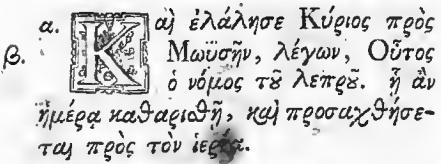 α. Καὶ ἐλάλησε Κύριος πρὸς
β. Μωϋσῆν, λέγων, Οὗτος
ὁ νόμος τȣ͂ λεπρȣ͂. ᾗ ἂν
ἡμέρᾳ καθαρισθῇ, καὶ προσαχθήσε-
ται πρὸς τὸν ἱερέα.